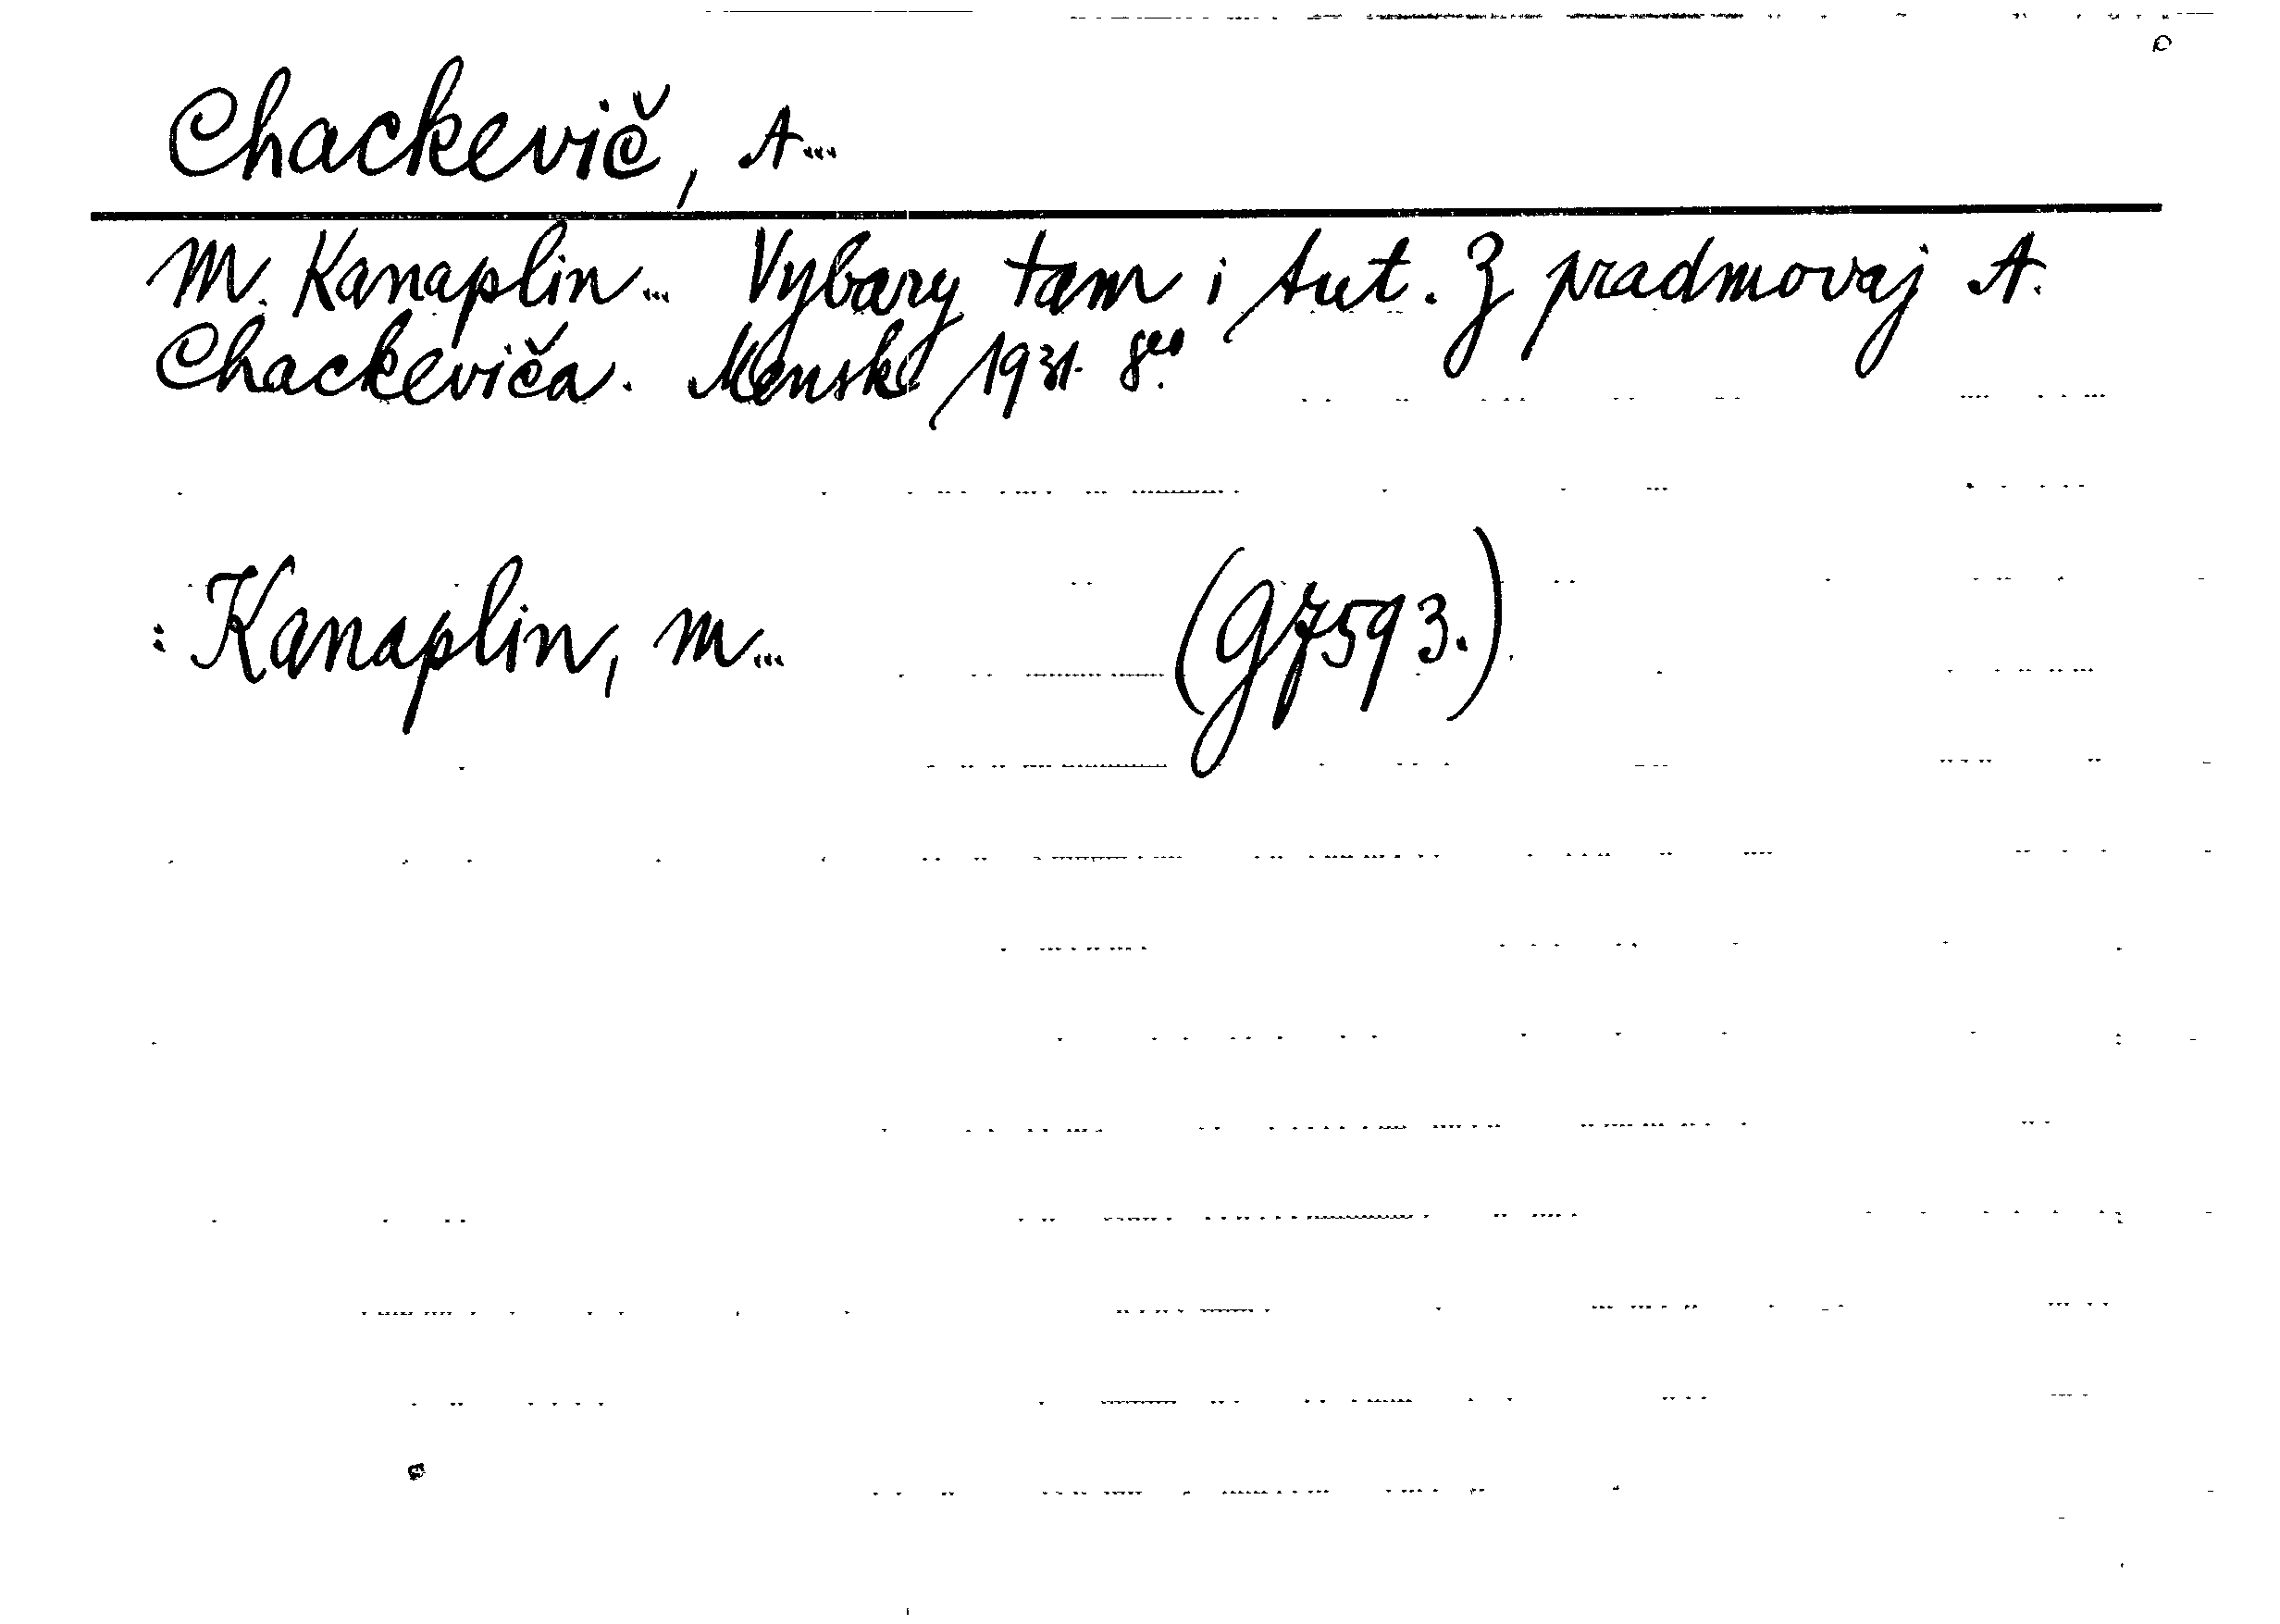 Chackevič, A...
M. Kanaplin... Vybary tam i tut. Z pradmovaj A.
Chackeviča. Mensk 1931. 8°.
: Kanaplin, M... (97593.)